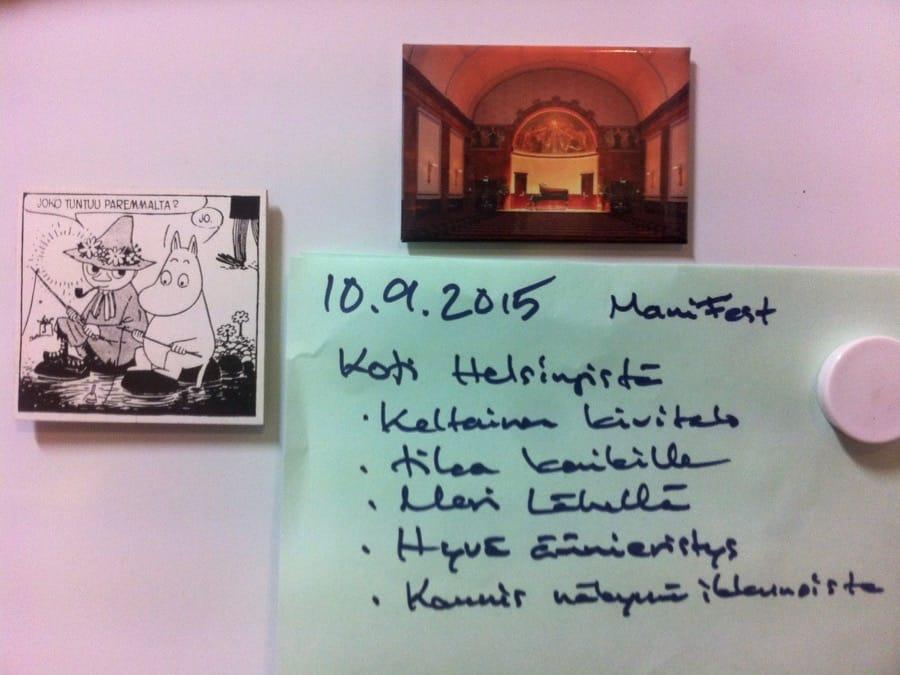 JOKO TUNTUU PAREMMALTA?
JO.
10.9.2015 Manifest
Koti Helsingistä
· Keltainen kivitalo
· tilaa kaikille
· Meri Lähellä
· Hyvä äänieristys
· Kaunis näkymä ikkunoista